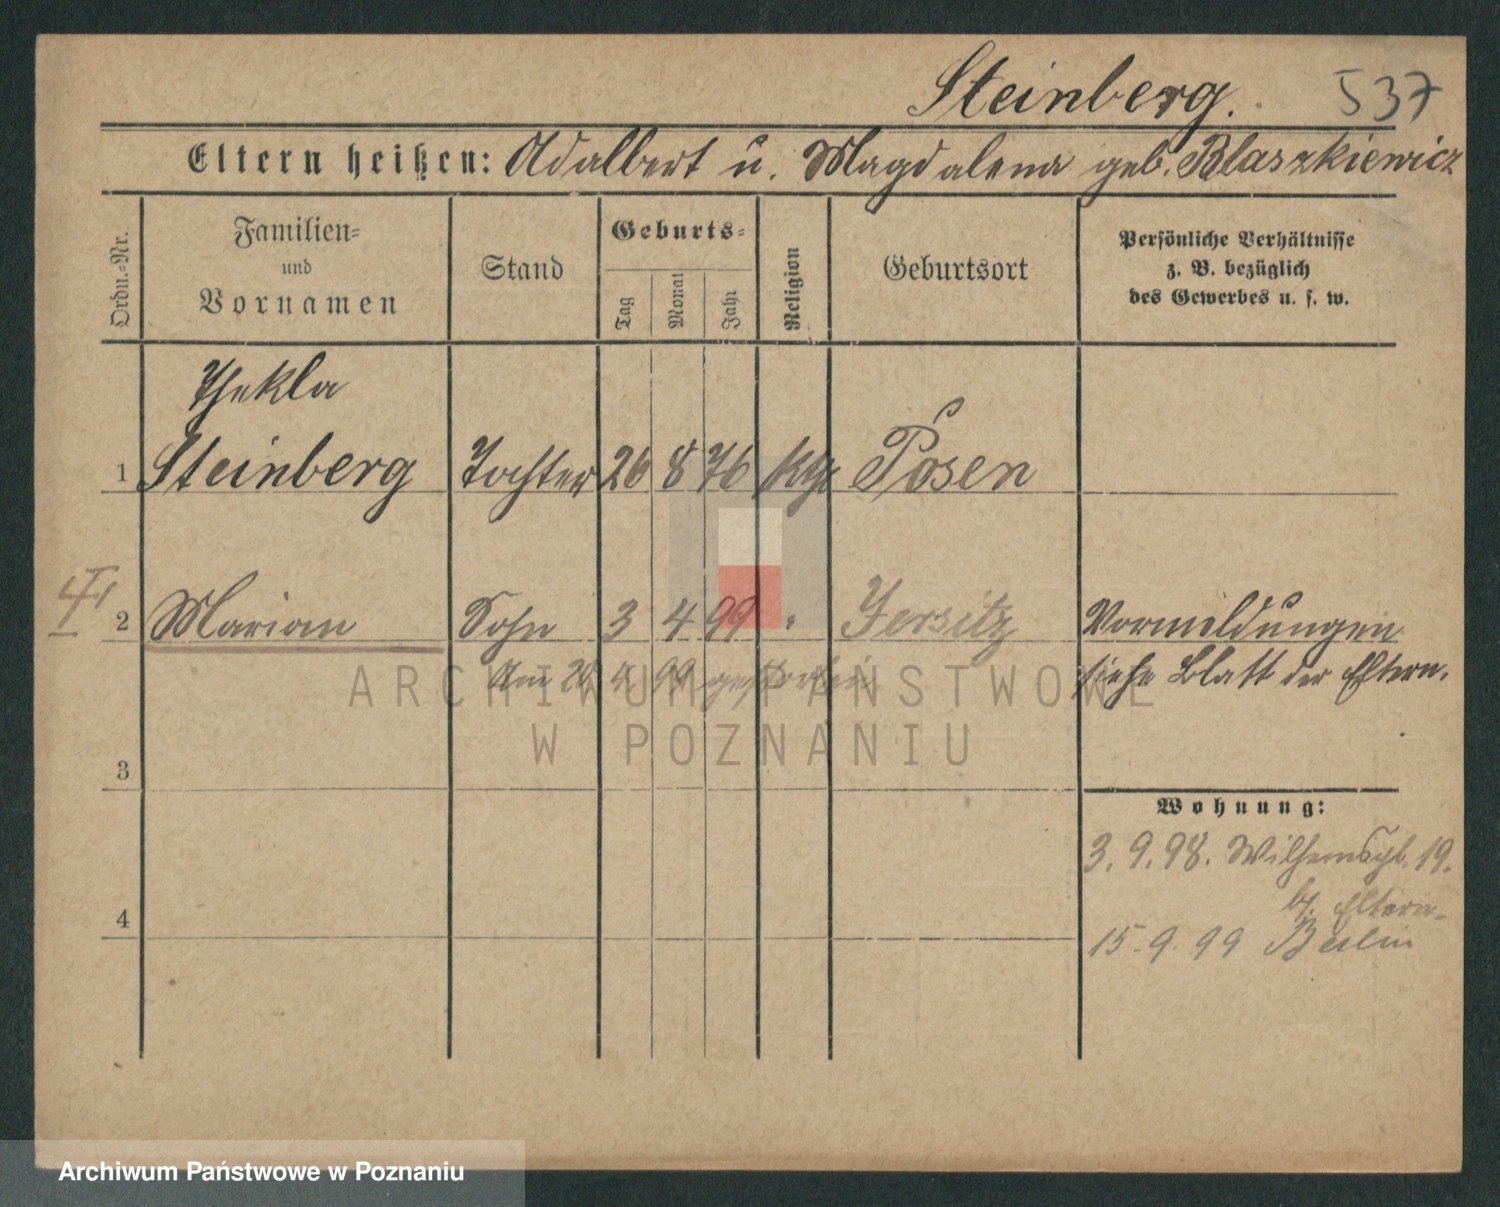 Steinberg. 537
Eltern heißen: Adalbert u. Magdalena geb. Blaszkiewicz
Ordn.-Nr.
Familien-
und
Vornamen
Stand
Geburts-
Tag
Monat
Jahr
Religion
Geburtsort
Persönliche Verhältnisse
z. B. bezüglich
des Gewerbes u. s. w.
Thekla
1 Steinberg Tochter 26 8 76 kth Posen
2 Marian Sohn 3 4 99 " Jersitz Vormeldungen
Am 4 99 gestorben siehe Blatt der Eltern.
ARCHIWUM PAŃSTWOWE
W POZNANIU
3
Wohnung:
3. 9. 98. Wilhelmspl. 19.
b. Eltern
4
15. 9. 99 Berlin
Archiwum Państwowe w Poznaniu